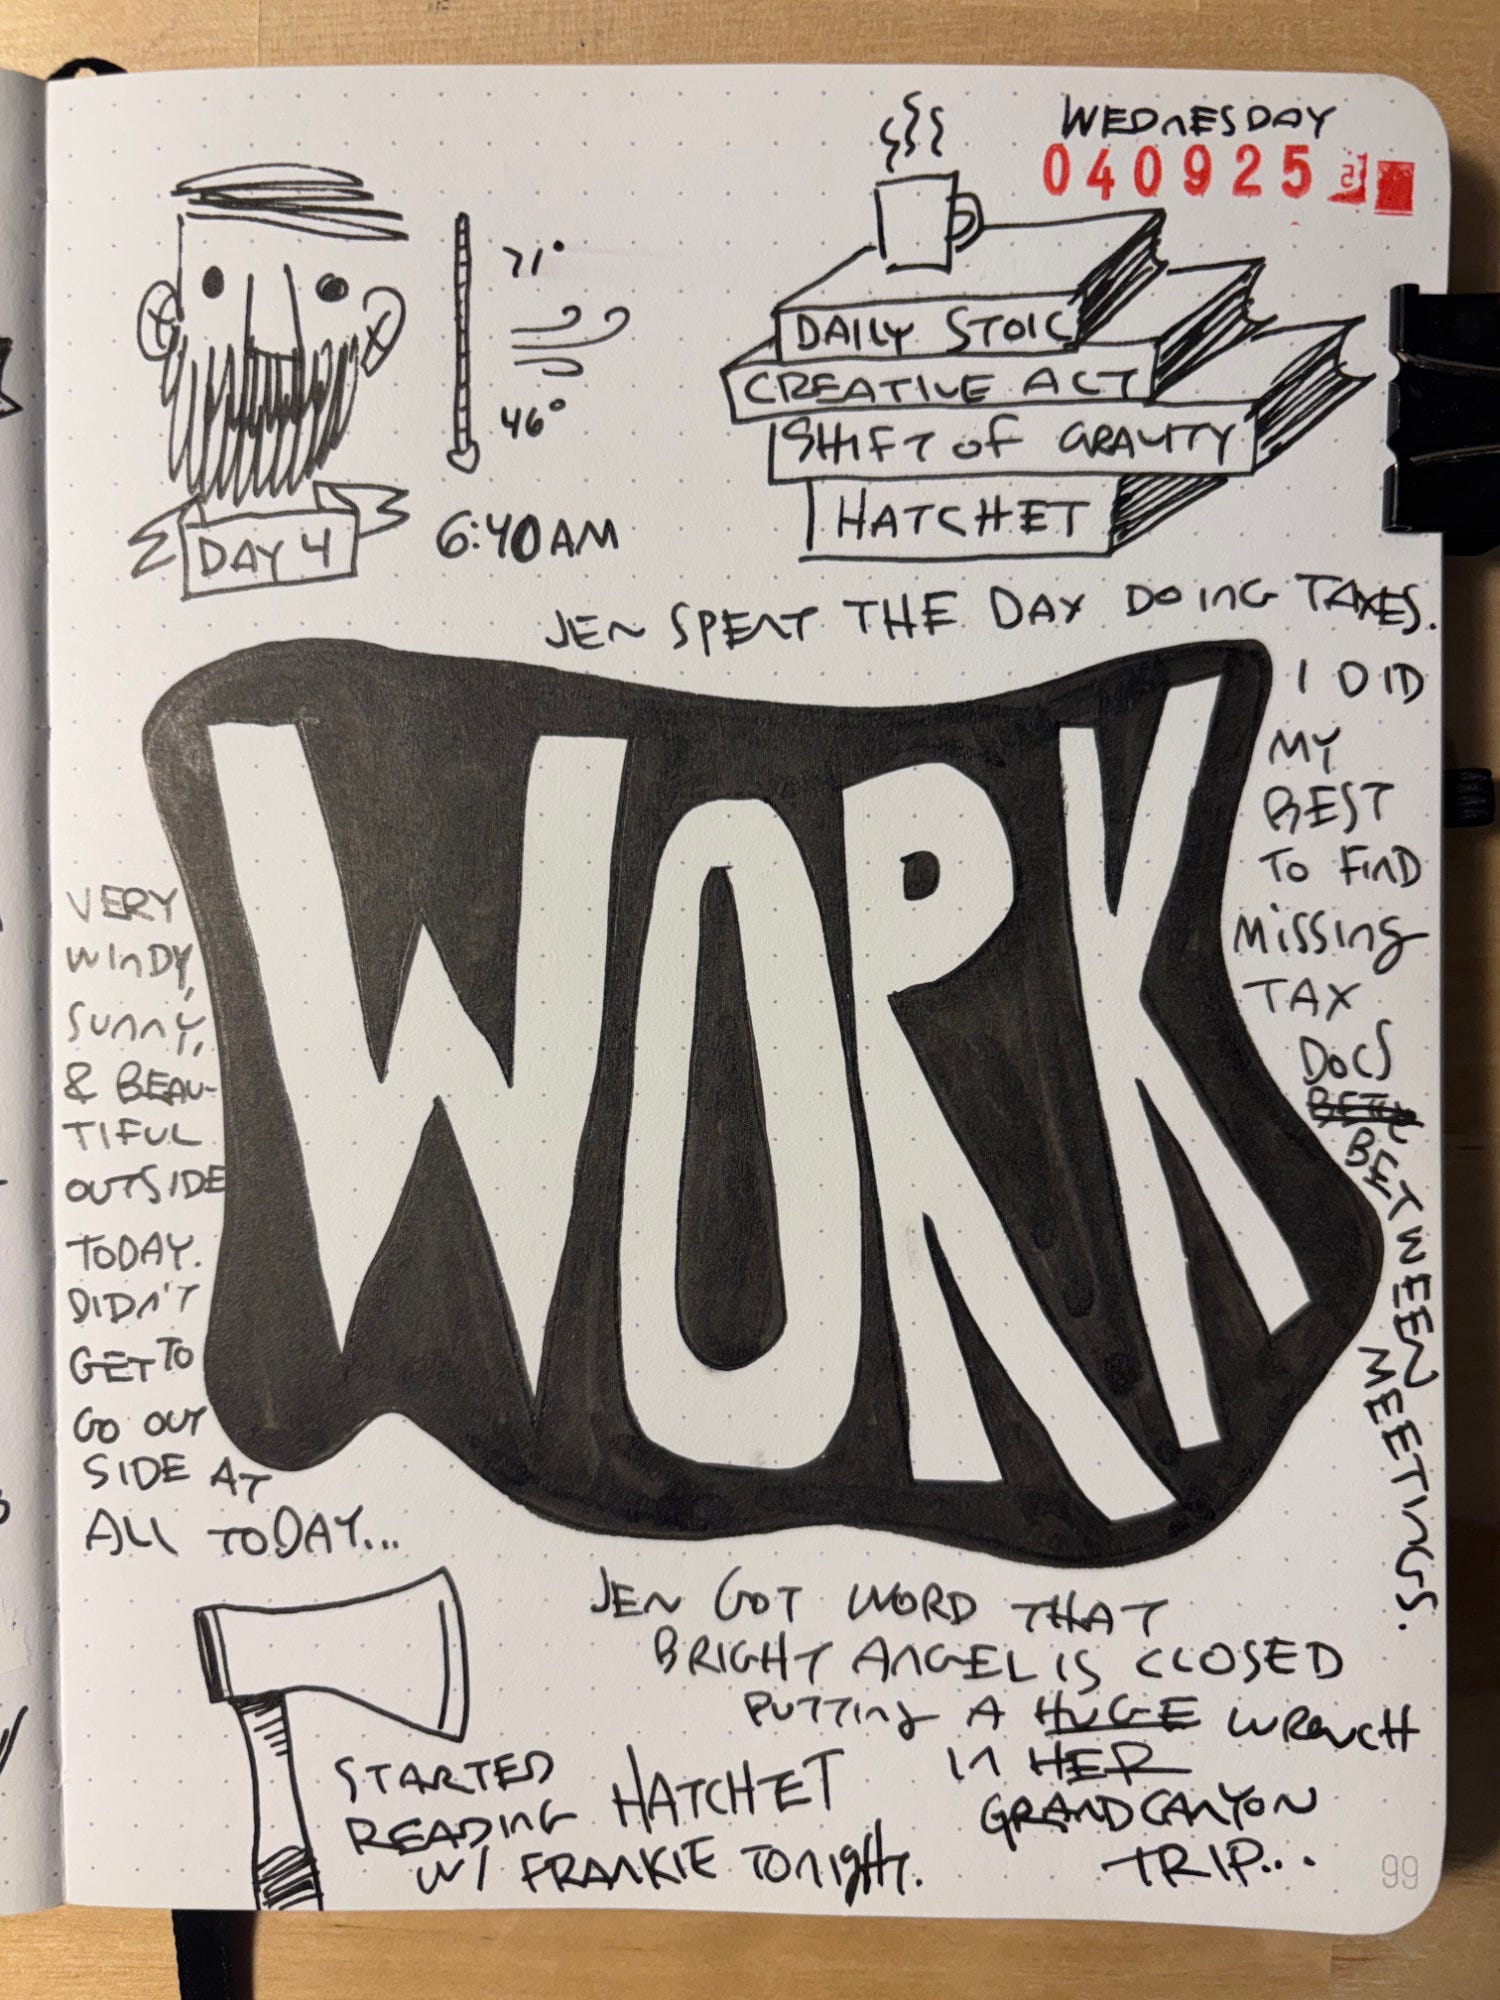 WEDNESDAY
040925
71°
46°
6:40AM
DAY 4
DAILY STOIC
CREATIVE ACT
SHIFT OF GRAVITY
HATCHET
JEN SPENT THE DAY DOING TAXES.
I DID
MY
BEST
TO FIND
MISSING
TAX
DOCS
BETWEEN
MEETINGS.
WORK
VERY
WINDY,
SUNNY,
& BEAU-
TIFUL
OUTSIDE
TODAY.
DIDN'T
GET TO
GO OUT
SIDE AT
ALL TODAY...
JEN GOT WORD THAT
BRIGHT ANGEL IS CLOSED
PUTTING A HUGE WRENCH
IN HER
GRAND CANYON
TRIP...
STARTED
READING HATCHET
W/ FRANKIE TONIGHT.
99